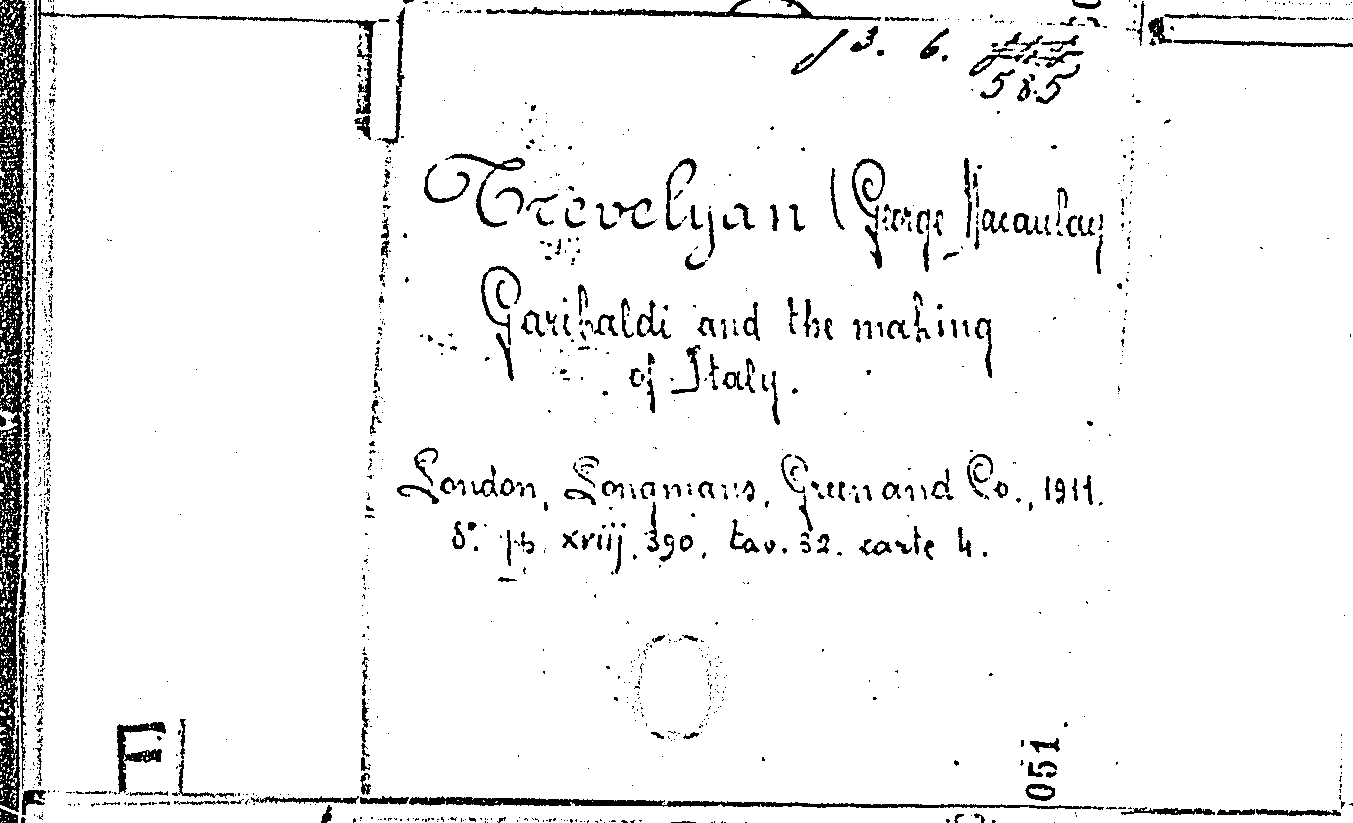 13. 6.
585
Trevelyan (George Macaulay
Garibaldi and the making
of Italy.
London, Longmans, Green and Co., 1911.
8°. pp. xviij, 390, tav. 32. carte 4.
051